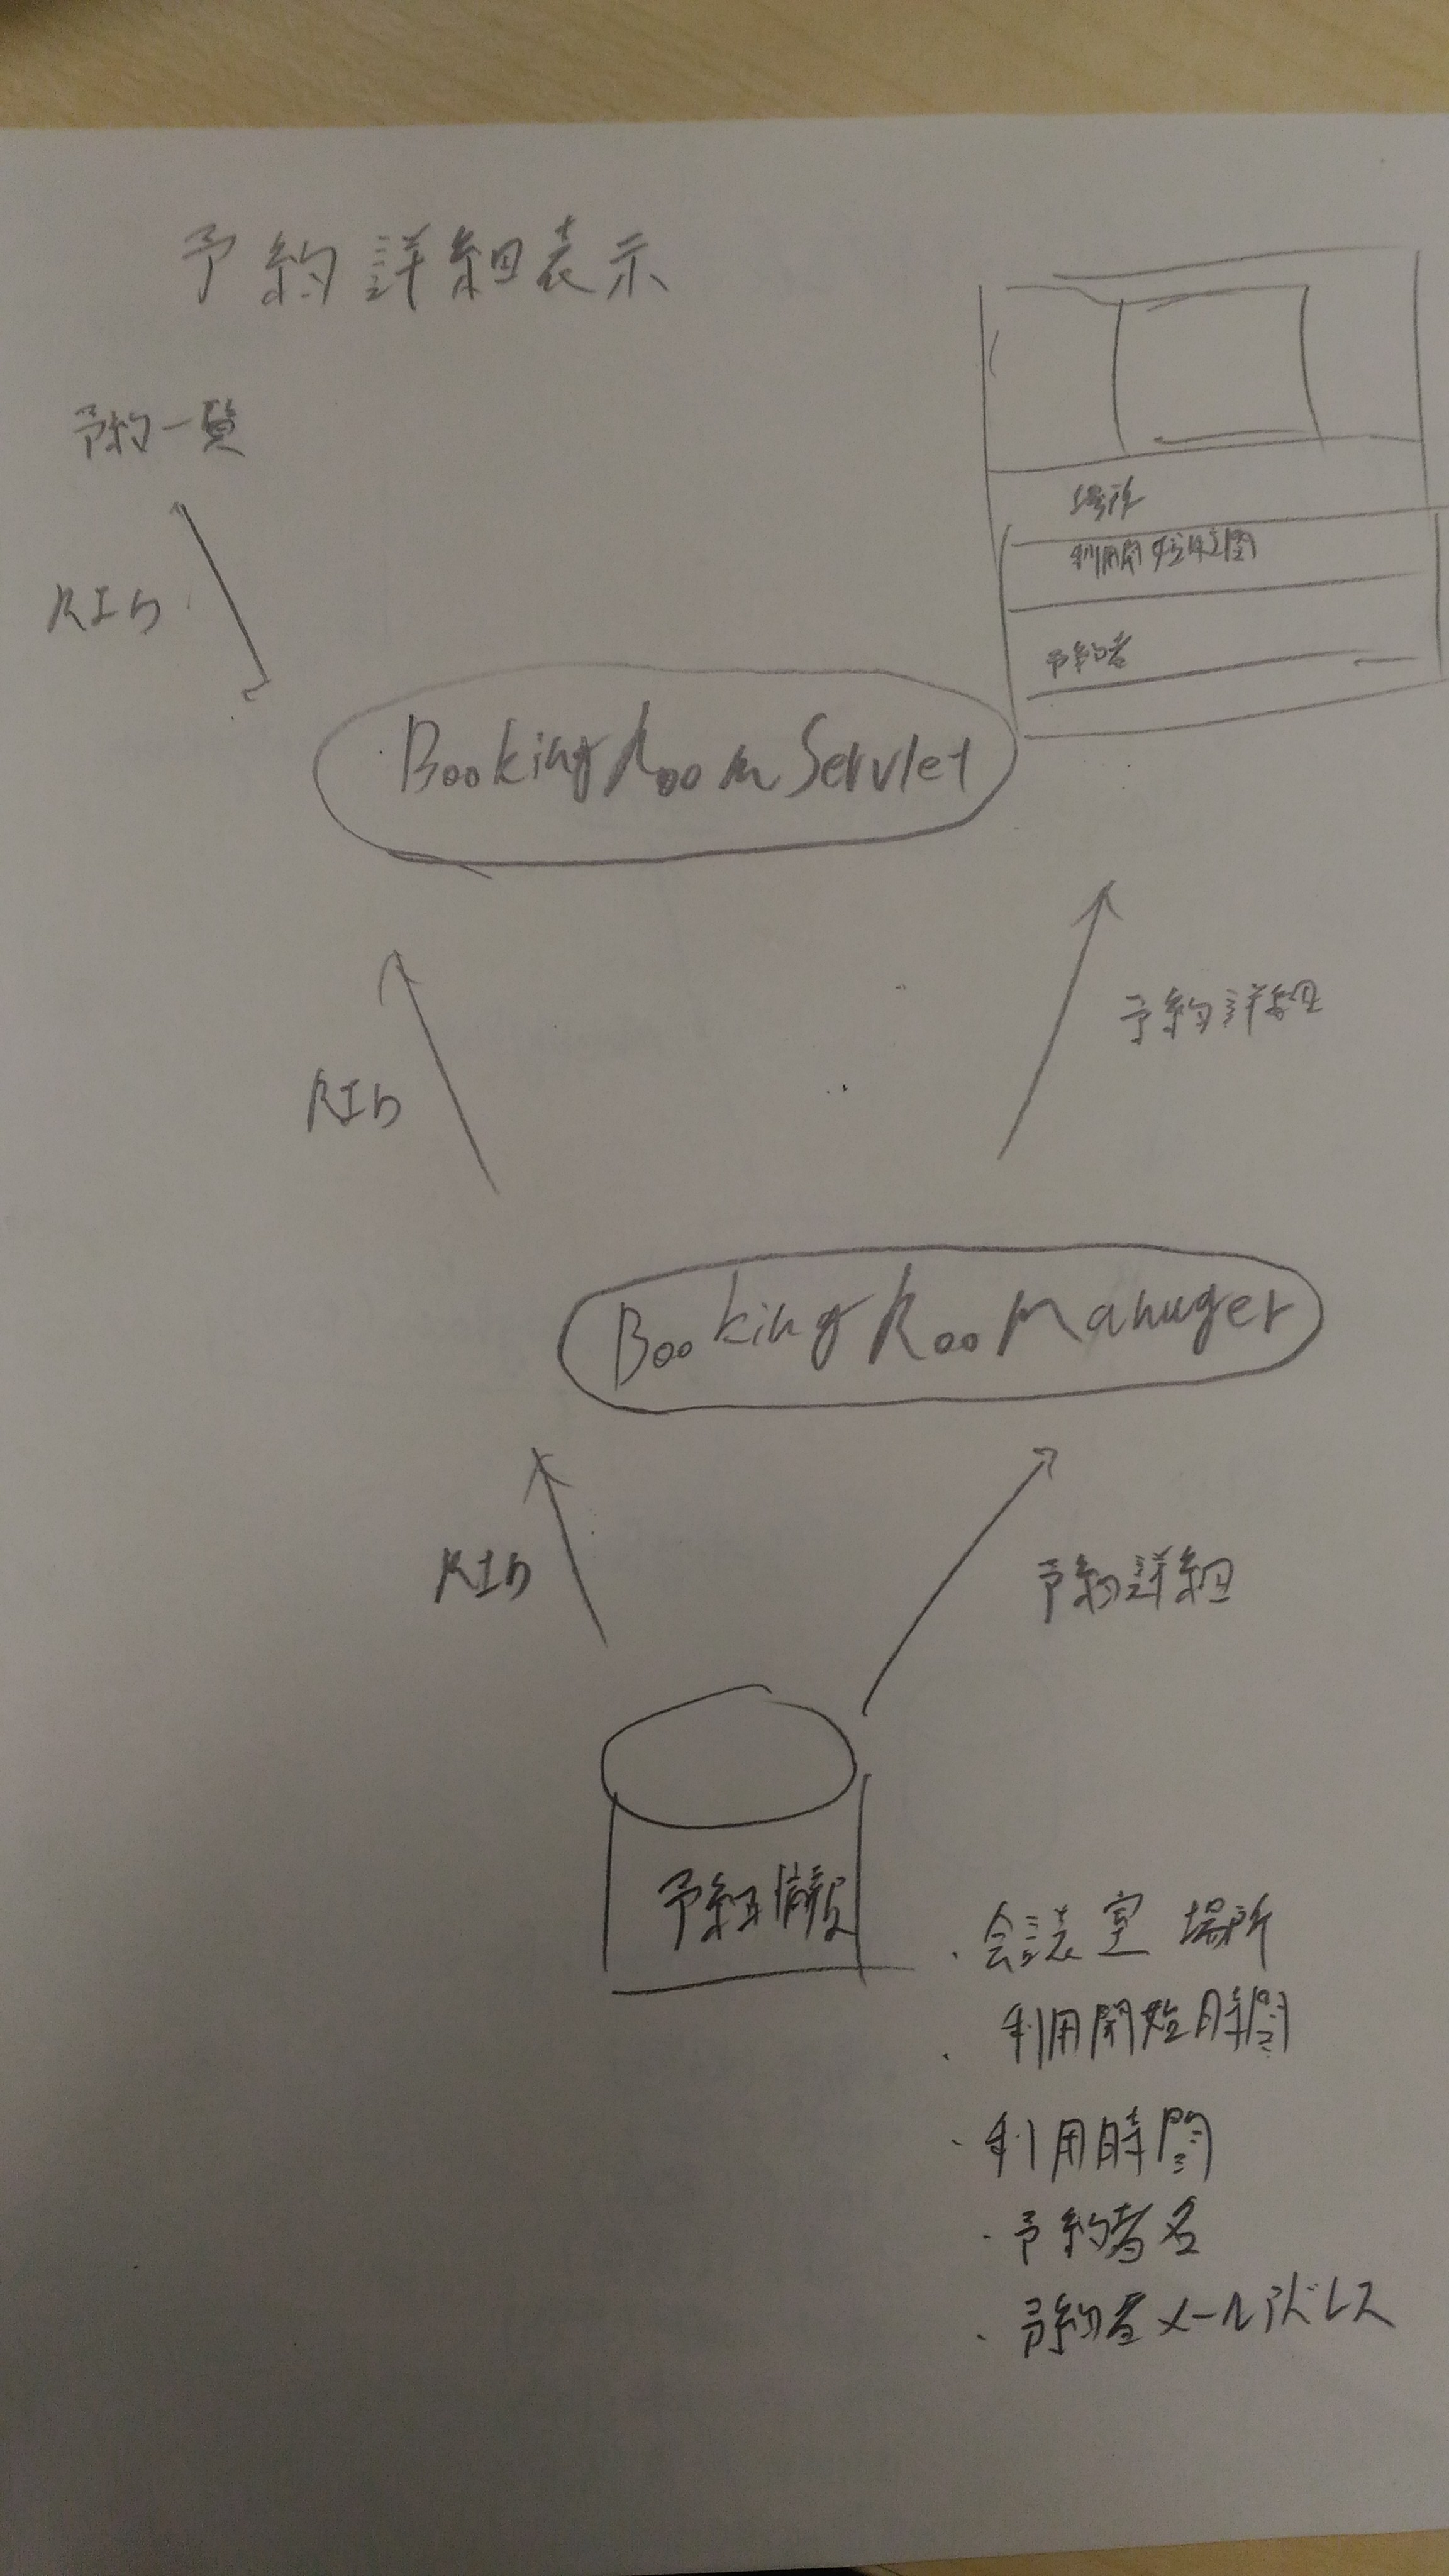 予約詳細表示
予約一覧
RID
場所
利用開始時間
予約者
BookingRoomServlet
予約詳細
RID
BookingRooManager
RID
予約詳細
予約情報
・会議室 場所
・利用開始時間
・利用時間
・予約者名
・予約者メールアドレス